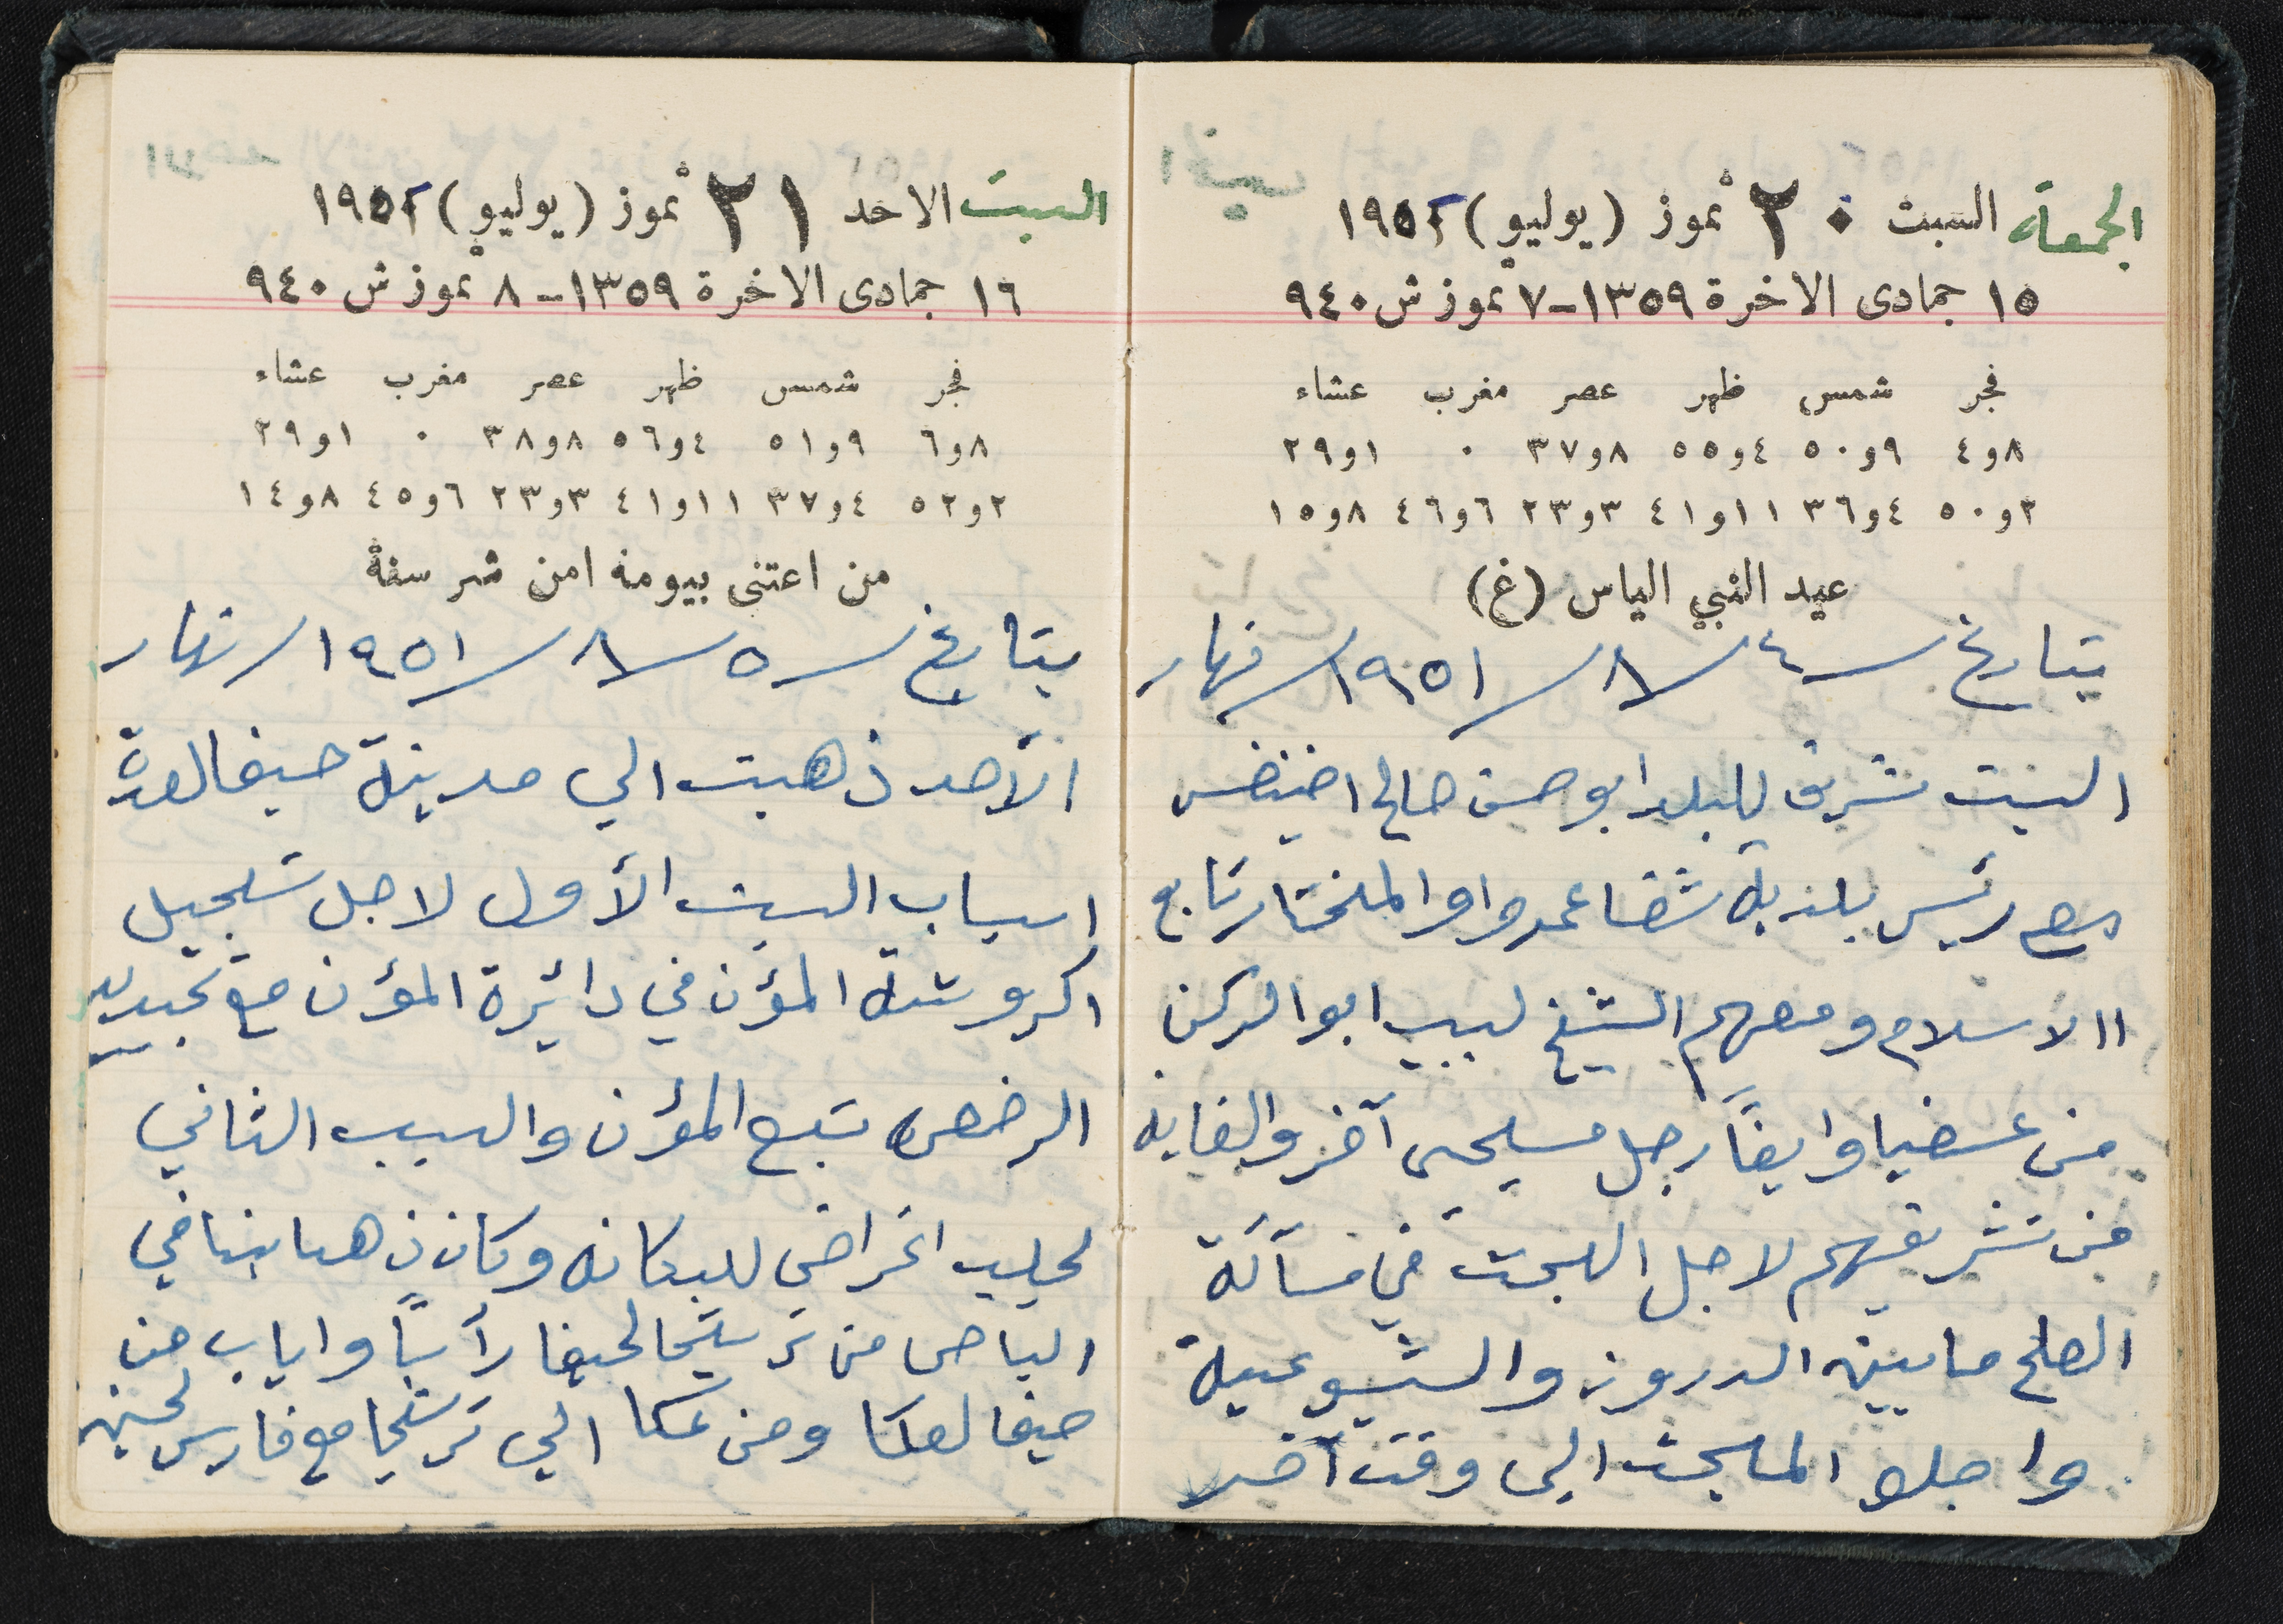 الجمعة السبت ٢٠ تموز (يوليو) ١٩٥٢
١٥ جمادى الاخرة ١٣٥٩-٧ تموز ش ٩٤٠
فجر شمس ظهر عصر مغرب عشاء
٨و٤ ٩و٥٠ ٤و٥٥ ٨و٣٧ ٠ ١و٢٩
٢و٥٠ ٤و٣٦ ١١و٤١ ٣و٢٣ ٦و٤٦ ٨و١٥
عيد النبي الياس (غ)
بتاريخ ٤/٨/١٩٥١/ نهار
السبت تشرف للبلد ابو حسن صالح اخنيفس
مع رئيس بلدية شفاعمرو او المختار تابع
الاسلام ومعهم الشيخ لبيب ابو الركن
من عسفيا وايضاً رجل مسيحي آخر والغايه
من تشريفهم لاجل البحث في مسألة
الصلح ما بين الدروز والشيوعية
واجلو المبحث الى وقت آخر
السبت الاحد ٢١ تموز (يوليو) ١٩٥٢
١٦ جمادى الاخرة ١٣٥٩-٨ تموز ش ٩٤٠
فجر شمس ظهر عصر مغرب عشاء
٨و٦ ٩و٥١ ٤و٥٦ ٨و٣٨ ٠ ١و٢٩
٢و٥٢ ٤و٣٧ ١١و٤١ ٣و٢٣ ٦و٤٥ ٨و١٤
من اعتنى بيومه امن شر سنة
بتاريخ ٥/٨/١٩٥١/ نهار
الأحد ذهبت الي مدينة حيفا لعدة
اسباب السبب الأول لاجل تسجيل
اكروشة المؤن في دائرة المؤن مع تجديد
الرخص تبع المؤن والسبب الثاني
لجليب اغراض للدكانه وكان ذهابنا في
الباص من ترشيحا لحيفا رأساً واياب من
حيفا لعكا ومن عكا الي ترشيحا مع فارس